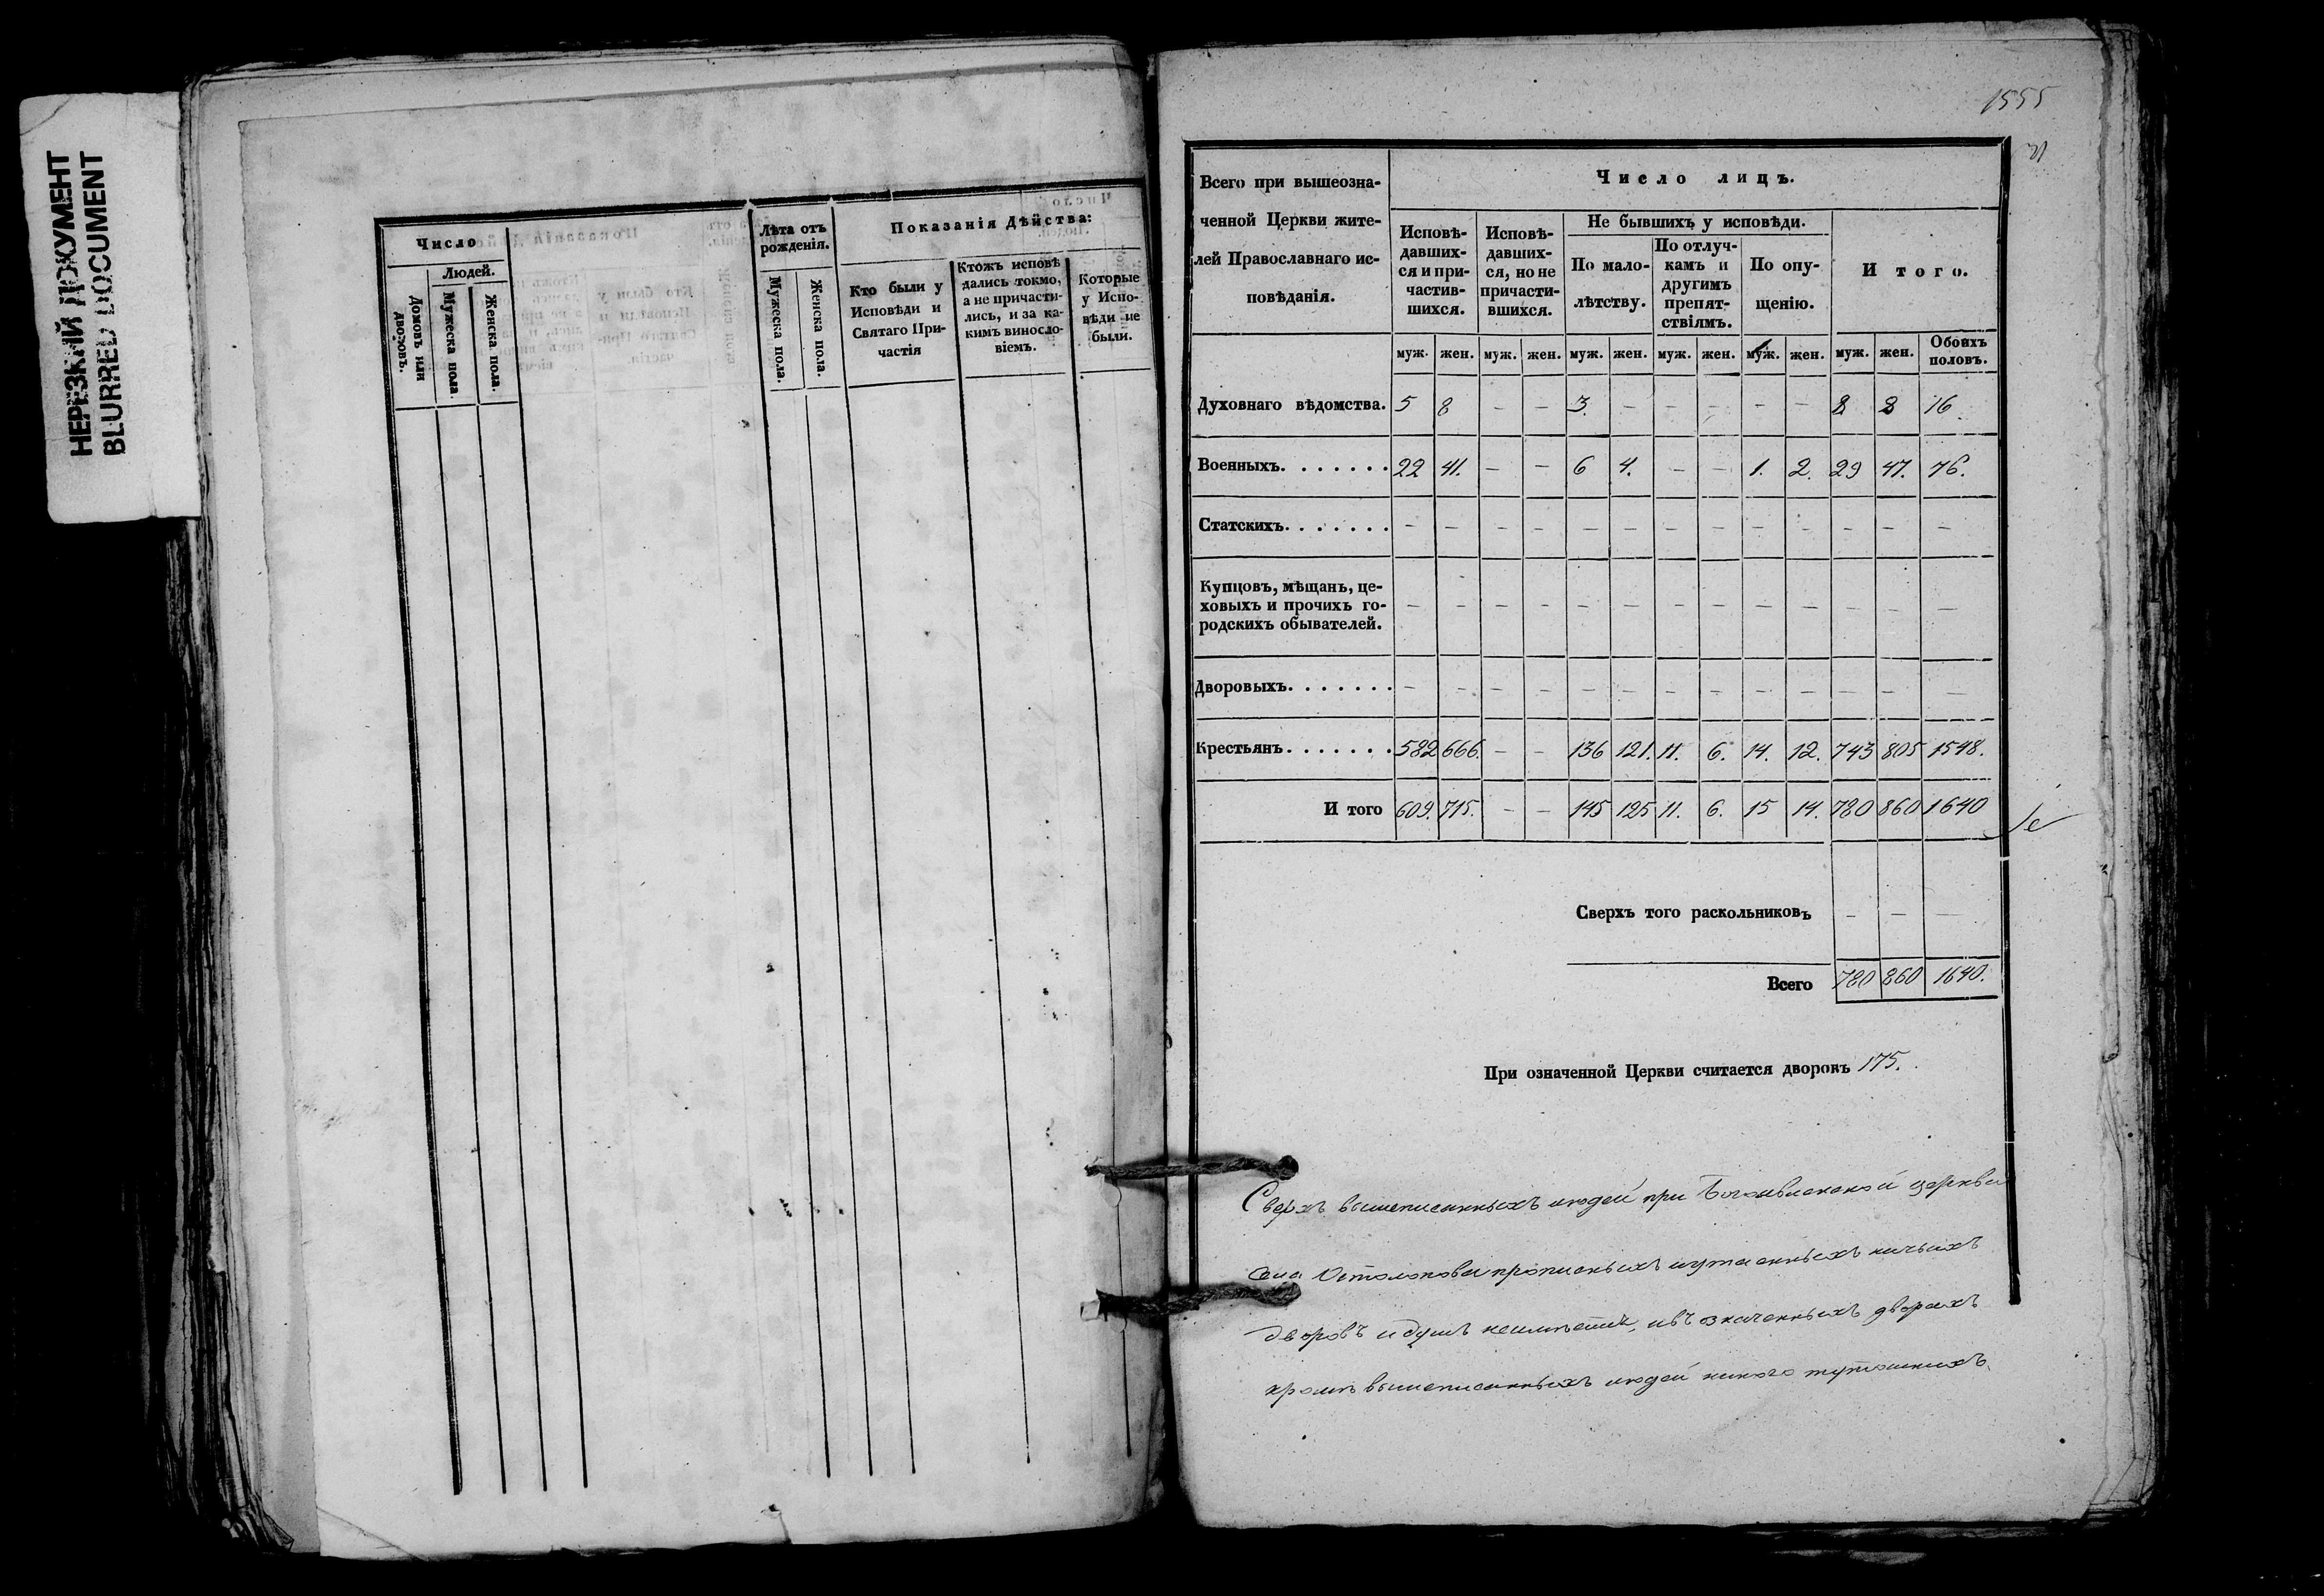 НЕРЕЗКИЙ ДОКУМЕНТ
BLURRED DOCUMENT
Число
Людей.
Домовъ или дворовъ.
Мужеска пола.
Женска пола.
Лѣта отъ рожденія.
Мужеска пола.
Женска пола.
Показанія Дѣйства:
Кто были у
Исповѣди и
Святаго При-
частія
Ктожъ исповѣ
дались токмо,
а не причасти-
лись, и за ка-
кимъ виносло-
віемъ.
Которые
у Испо-
вѣди не
были.
1555
Всего при вышеозна-
ченной Церкви жите-
лей Православнаго ис-
повѣданія.
Число лицъ.
Исповѣ-
давших-
ся и при-
частив-
шихся.
Исповѣ-
давших-
ся, но не
причасти-
вшихся.
Не бывшихъ у исповѣди.
По мало-
лѣтству.
По отлуч-
камъ и
другимъ
препят-
ствіямъ.
По опу-
щенію.
И того.
муж. жен. муж. жен. муж. жен. муж. жен. муж. жен. муж. жен. Обоихъ половъ.
Духовнаго вѣдомства. 5 8 – – 3. – – – – – 8 8 16
Военныхъ. . . . . . . 22 41. – – 6 4. – – 1. 2. 29 47. 76.
Статскихъ. . . . . . . – – – – – – – – – – – – –
Купцовъ, мѣщанъ, це-
ховыхъ и прочихъ го-
родскихъ обывателей. – – – – – – – – – – – – –
Дворовыхъ. . . . . . . – – – – – – – – – – – – –
Крестьянъ. . . . . . . 582 666. – – 136 121. 11. 6. 14. 12. 743 805 1548.
И того 609. 715. – – 145 125 11. 6. 15 14. 780 860 1640
Сверхъ того раскольниковъ – – –
Всего 780 860 1640.
При означенной Церкви считается дворовъ 175.
Сверхъ вышеписанныхъ людей при Богоявленской церкви
села Остолопова прописныхъ и утаенныхъ ничьихъ
дворовъ и душъ неимѣется, и въ означенныхъ дворахъ
кромѣ вышеписанныхъ людей никого